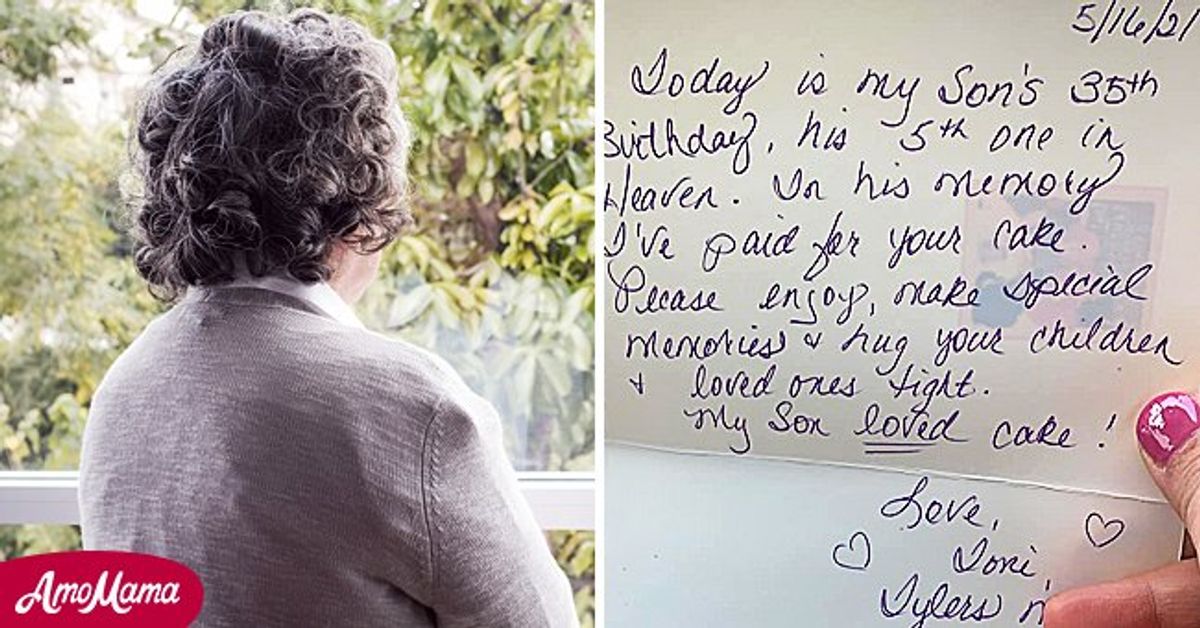 5/16/21
Today is my Son's 35th
Birthday, his 5th one in
Heaven. In his memory
I've paid for your cake.
Please enjoy, make special
memories & hug your children
& loved ones tight.
My Son loved cake!
Love,
Tori,
Tylers
AmoMama